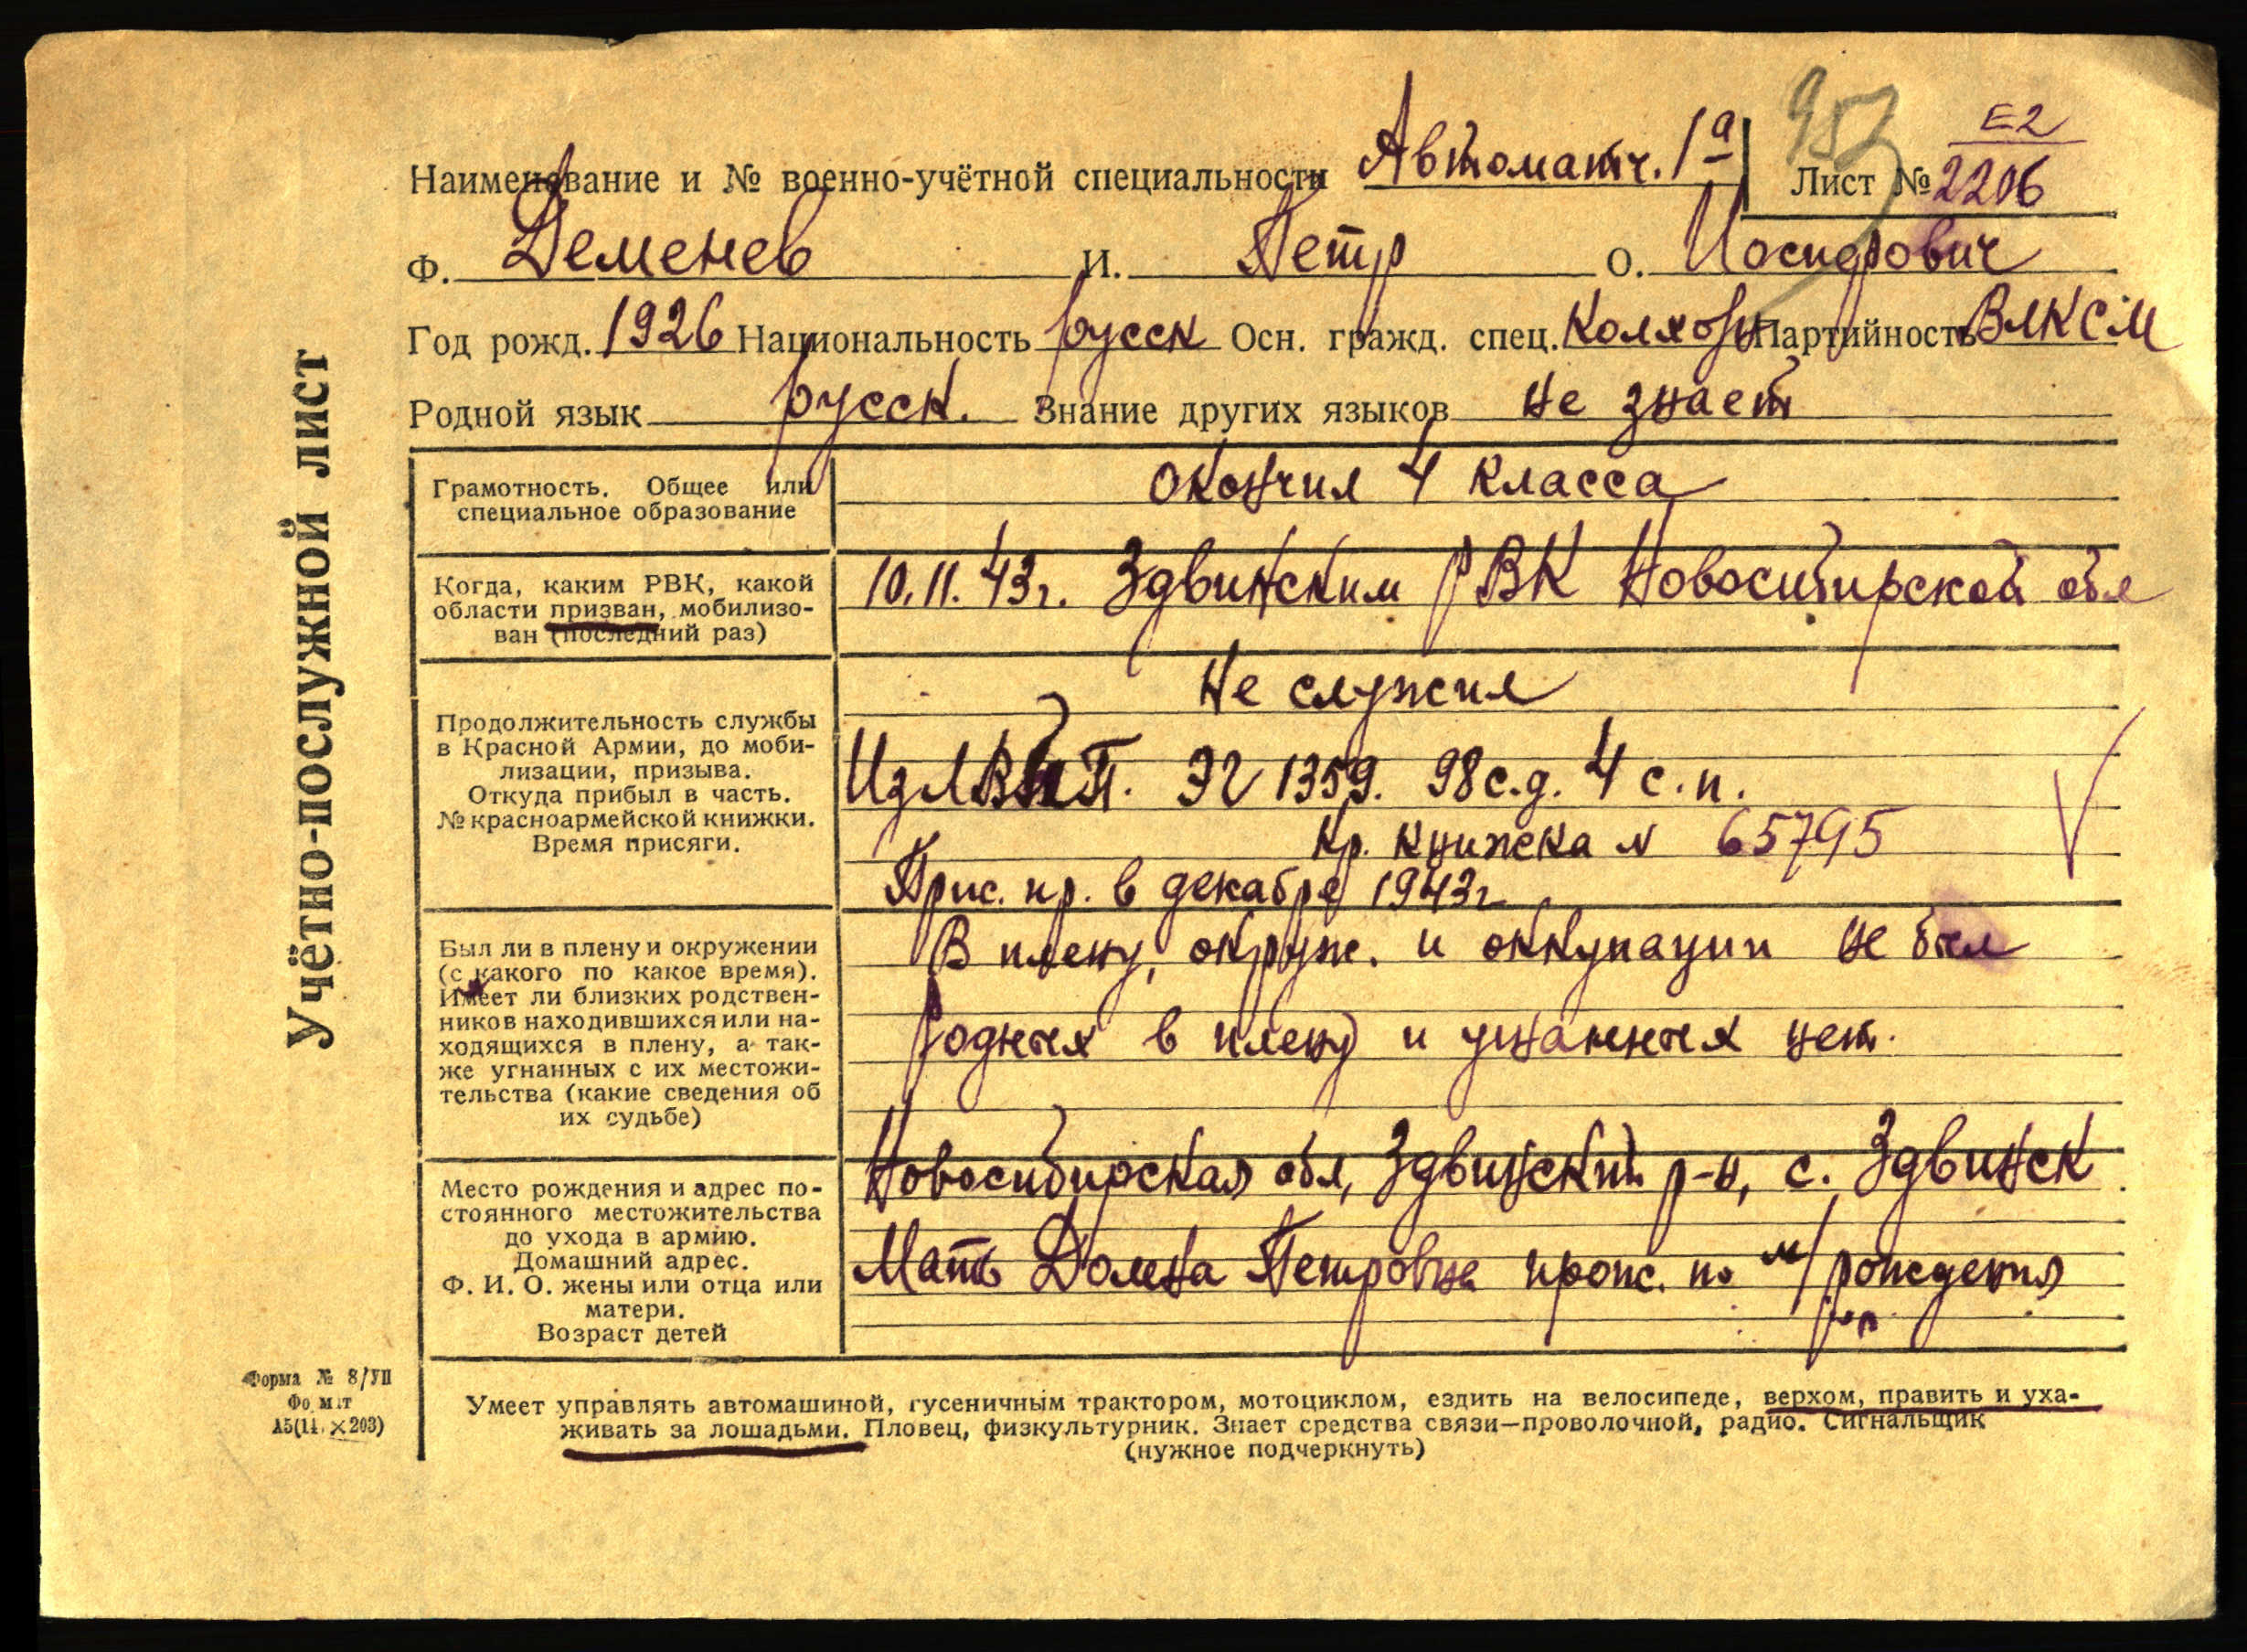 Учётно-послужной лист
952
Е2
Наименование и № военно-учётной специальности Автоматч. 1а Лист № 2206
Ф. Деменев И. Петр О. Иосифович
Год рожд. 1926 Национальность русск Осн. гражд. спец. Колхозн Партийность ВЛКСМ
Родной язык русск. Знание других языков не знает
Грамотность. Общее или
специальное образование
окончил 4 класса
Когда, каким РВК, какой
области призван, мобилизо-
ван (последний раз)
10.11.43г. Здвинским РВК Новосибирской обл
Продолжительность службы
в Красной Армии, до моби-
лизации, призыва.
Откуда прибыл в часть.
№ красноармейской книжки.
Время присяги.
Не служил
ЭГ 1359. 98 с.д. 4 с.п.
Кр. книжка № 65795
Прис. пр. в декабре 1943г
Был ли в плену и окружении
(с какого по какое время).
Имеет ли близких родствен-
ников находившихся или на-
ходящихся в плену, а так-
же угнанных с их местожи-
тельства (какие сведения об
их судьбе)
В плену, окруж. и оккупации не был
Родных в плену и угнанных нет.
Место рождения и адрес по-
стоянного местожительства
до ухода в армию.
Домашний адрес.
Ф. И. О. жены или отца или
матери.
Возраст детей
Новосибирская обл, Здвинский р-н, с. Здвинск
Мать Домна Петровна прож. по м/рождения
Форма № 8/УП
Фо мат
А5(14 ×203)
Умеет управлять автомашиной, гусеничным трактором, мотоциклом, ездить на велосипеде, верхом, править и уха-
живать за лошадьми. Пловец, физкультурник. Знает средства связи—проволочной, радио. Сигнальщик
(нужное подчеркнуть)